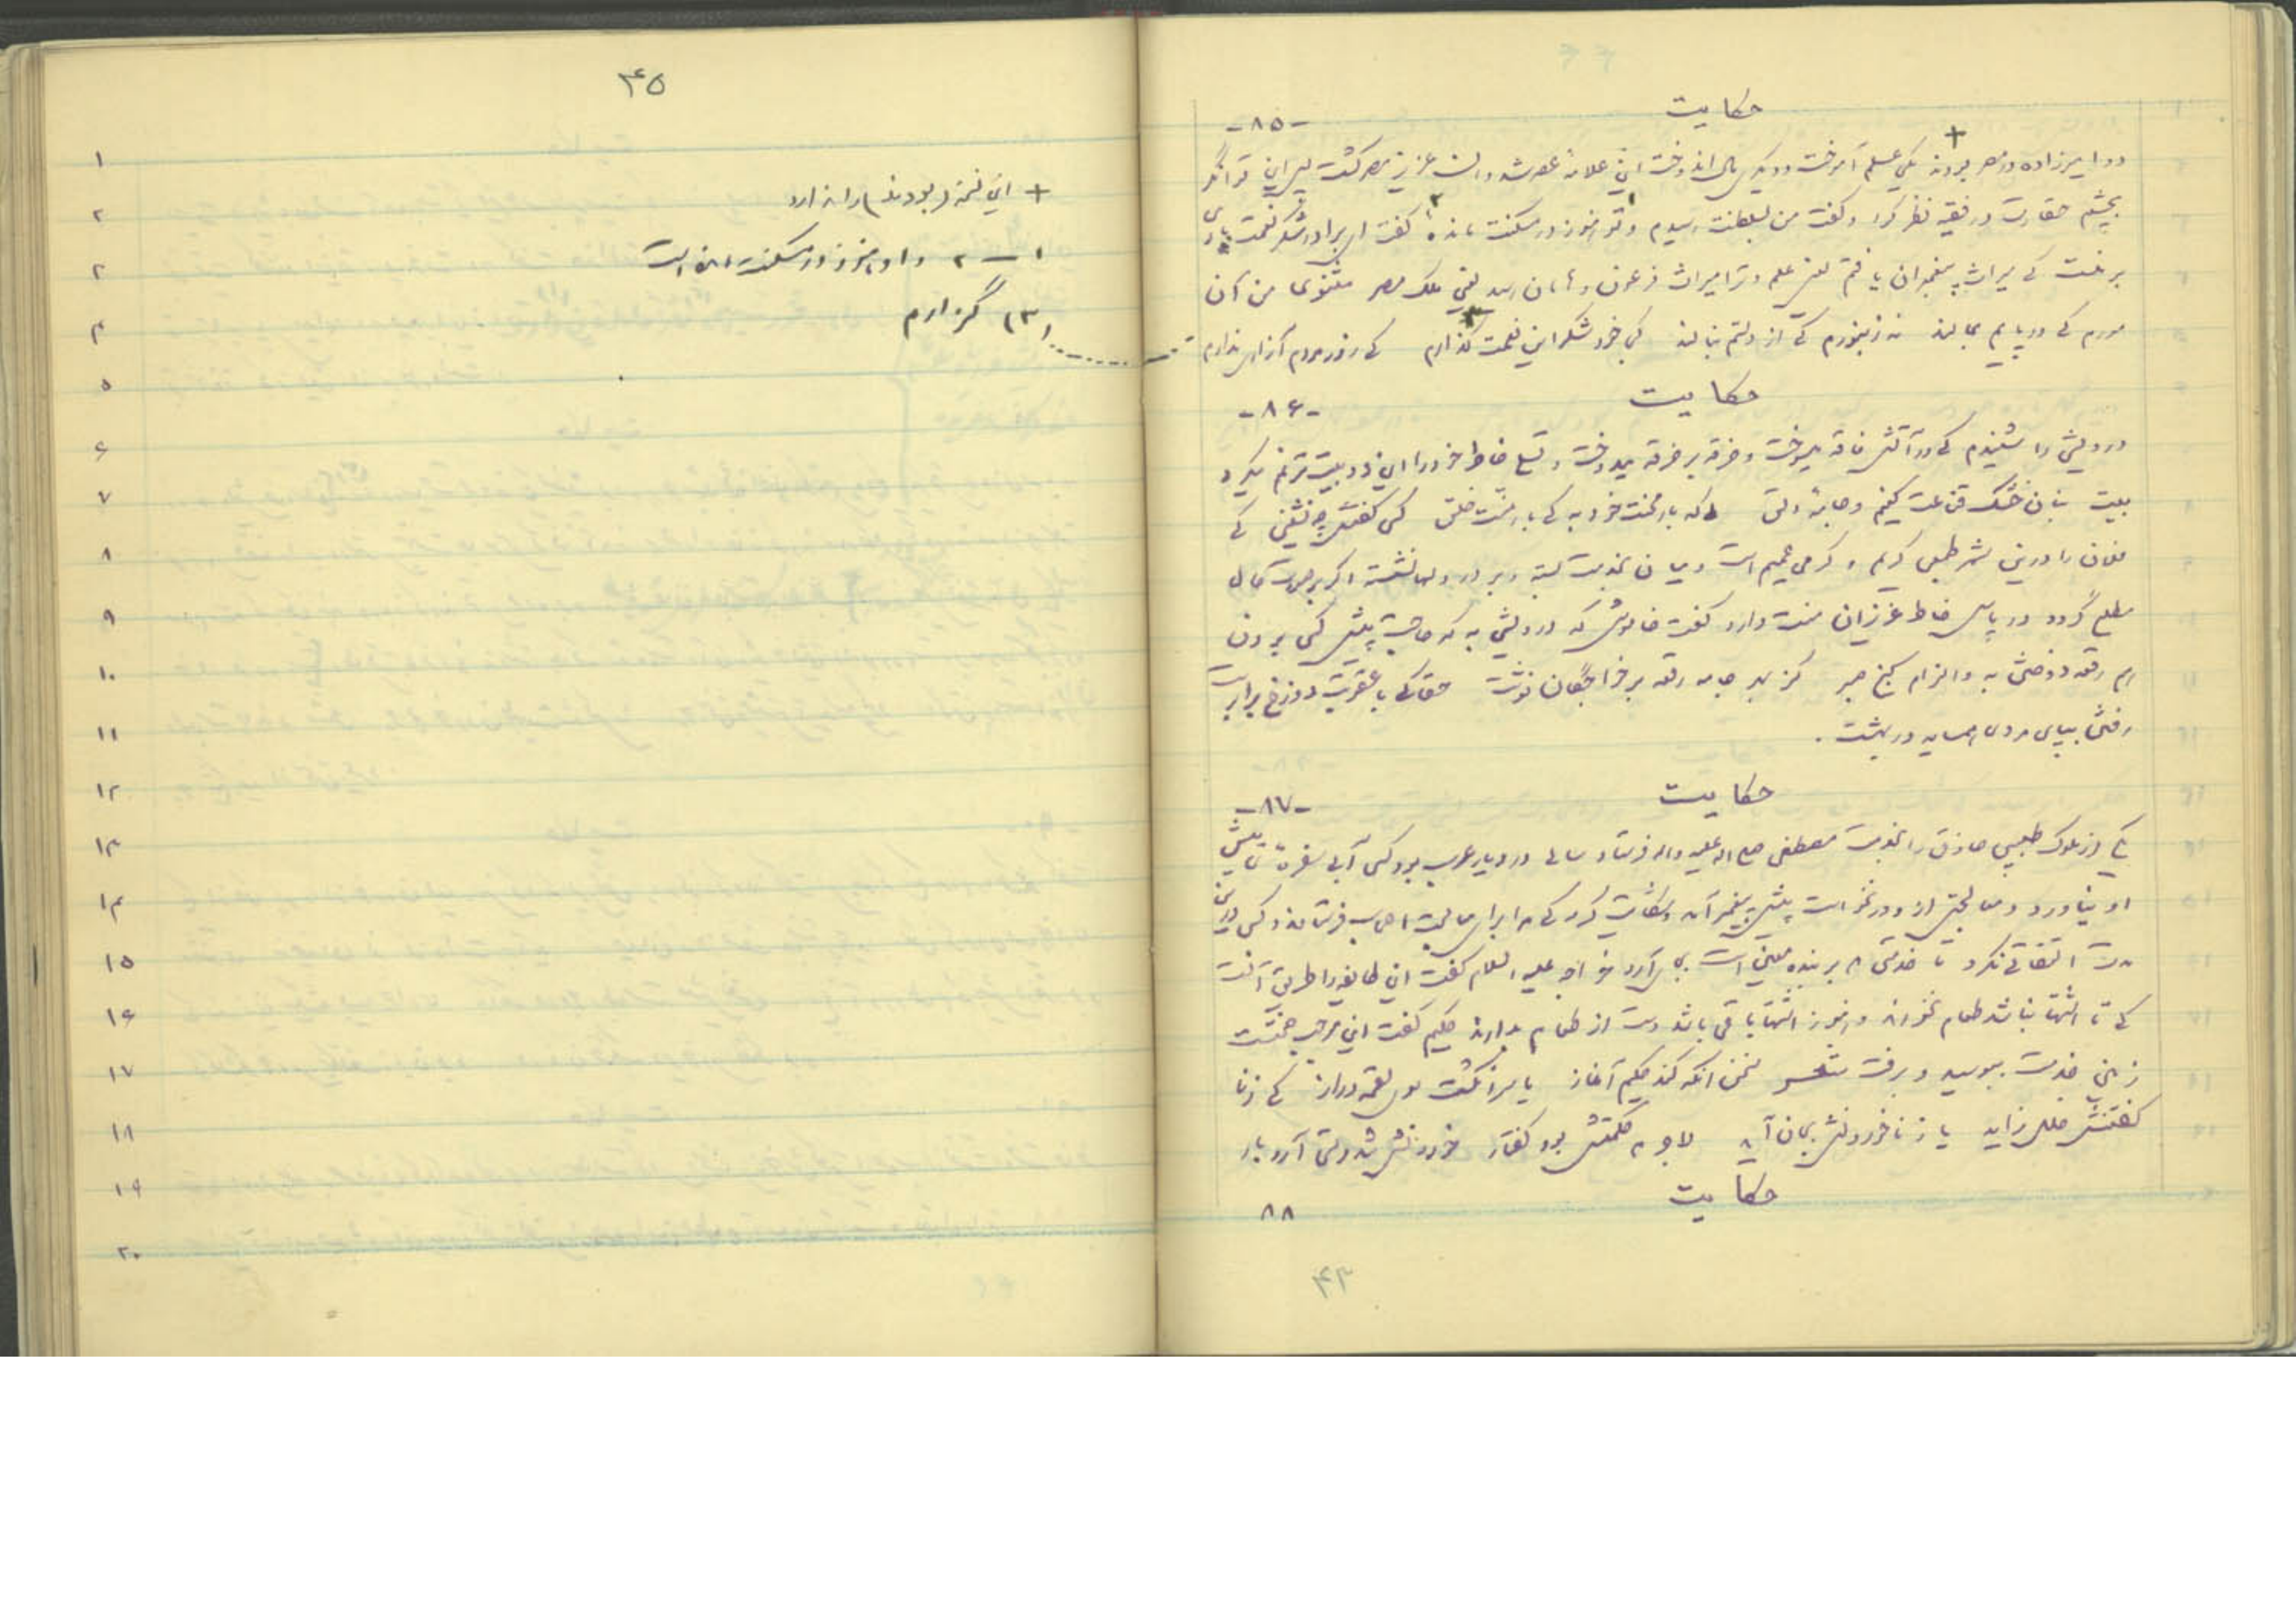 حکایت
-۸۵-
دو امیرزاده در مصر بودند یکی علم آموخت و دیگری مال اندوخت این علامهٔ عصر شد و آن عزیز مصر گشت پس این توانگر
بچشم حقارت در فقیه نظر کرد و گفت من بسلطنت رسیدم و تو هنوز در مسکنت مانده گفت ای برادر شکر نعمت باری
بر منست که میراث پیغمبران یافتم یعنی علم و ترا میراث فرعون و هامان رسید یعنی ملک مصر مثنوی من آن
مورم که در پایم بمالند نه زنبورم که از دستم بنالند کجا خود شکر این نعمت گذارم که زور مردم آزاری ندارم
حکایت
-۸۶-
درویشی را شنیدم که در آتش فاقه میسوخت و خرقه بر خرقه میدوخت و تسلی خاطر خود را این دو بیت ترنم میکرد
بیت بنان خشک قناعت کنیم و جامهٔ دلق که بار محنت خود به که بار منت خلق کسی گفتش چه نشینی که
فلان را درین شهر طبعی کریم و کرمی عمیم است و میان بخدمت بسته و بر در دلها نشسته اگر بر صورت حال
مطلع گردد در پاس خاطر عزیزان منت دارد گفت خاموش که در درویشی به که حاجت پیش کسی بردن
هم رقعه دوختن به و الزام کنج صبر کز بهر جامه رقعه بر خواجگان نوشت حقا که با عقوبت دوزخ برابرست
رفتن بپای مردی همسایه در بهشت .
حکایت
-۸۷-
یکی از ملوک طبیبی حاذق را بخدمت مصطفی صلی الله علیه و اله فرستاد سالی در دیار عرب بود کسی آبی سفرهٔ پیش
او نیاورد و معالجتی از و در نخواست پیش پیغمبر آمد و شکایت کرد که مرا برای معالجت اصحاب فرستادند و کسی درین
مدت التفاتی نکرد تا خدمتی که بر بنده معین است بجای آرد خواجه علیه السلام گفت این طایفه را طریقی آنست
که تا اشتها نباشد طعام نخورند و هنوز اشتها باقی باشد دست از طعام بدارند حکیم گفت این موجب صحتست
زمین خدمت ببوسید و برفت شعر سخن آنگه کند حکیم آغاز یا سر انگشت سوی لقمه دراز که ز نا
گفتنش خلل زاید یا ز ناخوردنش بجان آید لاجرم حکمتش بود گفتار خوردنش تندرستی آرد بار
حکایت
۸۸
۴۳
۴۵
+ این نسخه (بودند) را ندارد
۱ - ۲ و او هنوز در مسکنت مانده است
(۳) گزارم
۱
۲
۳
۴
۵
۶
۷
۸
۹
۱۰
۱۱
۱۲
۱۳
۱۴
۱۵
۱۶
۱۷
۱۸
۱۹
۲۰